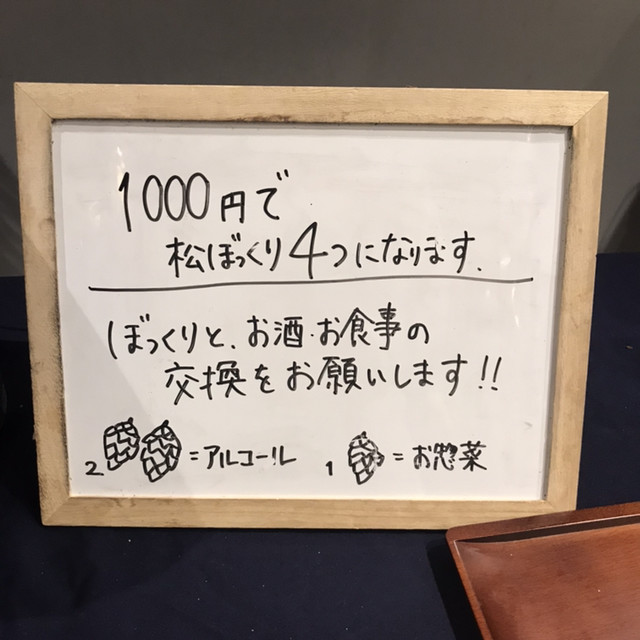 1000円で
松ぼっくり4つになります.
ぼっくりと、お酒・お食事の
交換をお願いします!!
2 =アルコール 1 =お惣菜